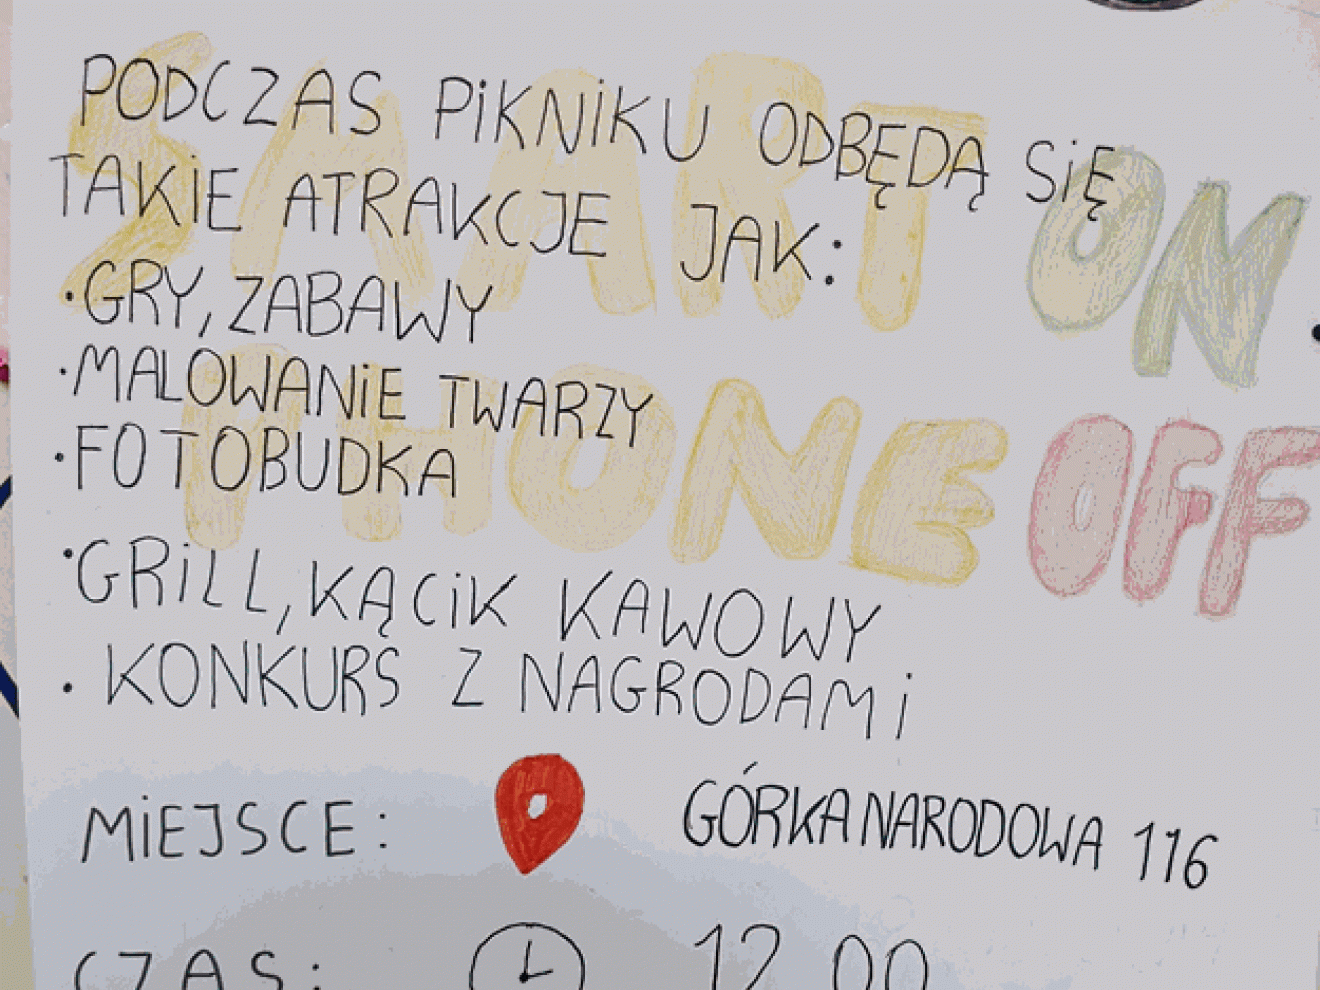 PODCZAS PiKNiKU ODBĘDĄ SiĘ
TAKiE ATRAKCJE JAK:
• GRY, ZABAWY
• MALOWANiE TWARZY
• FOTOBUDKA
• GRiLL, KĄCiK KAWOWY
• KONKURS Z NAGRODAMi
MiEJSCE: GÓRKA NARODOWA 116
CZAS: 12.00
SMART ON
PHONE OFF